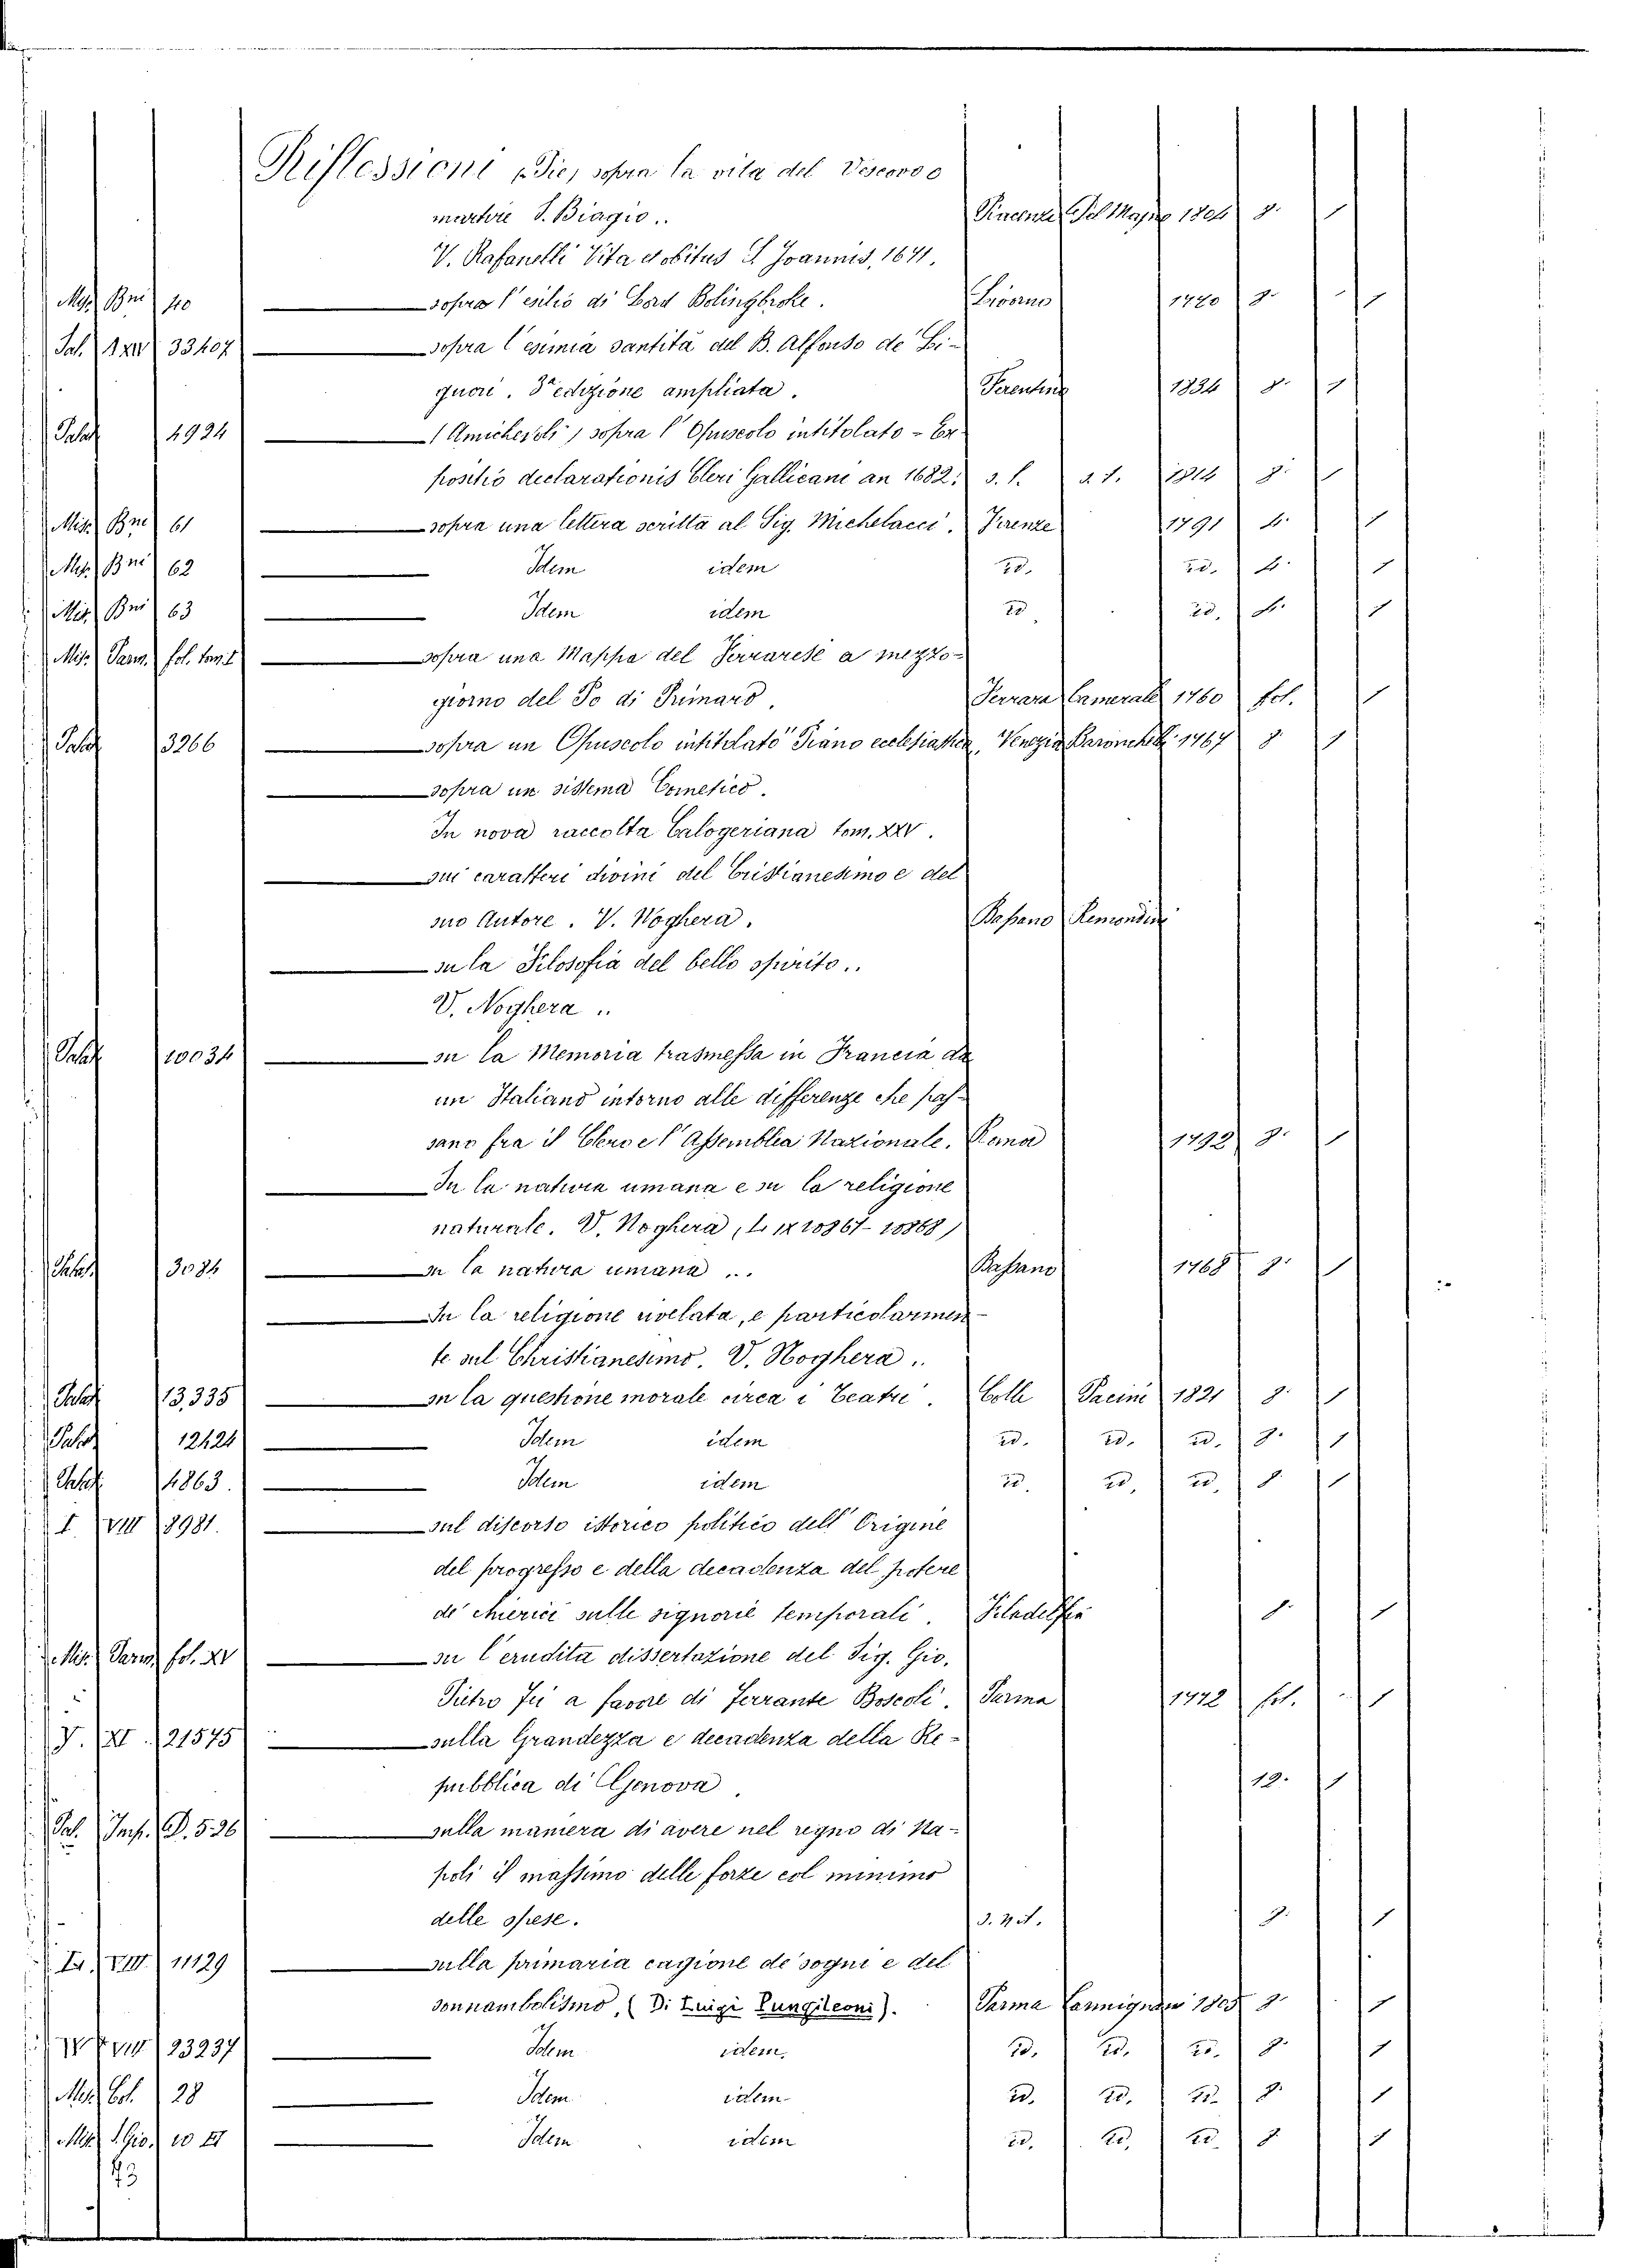 Riflessioni (Die) sopra la vita del Vescovo e
martire S. Biagio.. Piacenza Del Majno 1804 8. 1
V. Rafanelli Vita et obitus S. Joannis, 1641.
Misc. Bni 40 sopra l'esilio di Lord Bolingbroke. Livorno 1770 8. 1
Sal. IXIV 33407 sopra l'esimia santità del B. Alfonso de Li-
guori. 3ª edizione ampliata. Ferentino 1834 8. 1
Palat 4924 (Amichevoli) sopra l'Opuscolo intitolato - Ex-
positio declarationis Cleri Gallicani an 1682. s. l. a. t. 1814 8. 1
Misc. Bni 61 sopra una lettera scritta al Sig. Michelacci. Firenze 1791 4. 1
Misc. Bni 62 Idem idem id. id. 4. 1
Mis. Bni 63 Idem idem id id. 4. 1
Mis. Parm. fol. tom. I sopra una Mappa del Ferrarese a mezzo-
giorno del Po di Primaro. Ferrara Camerale 1760 fol. 1
Palat 3266 sopra un Opuscolo intitolato Piano ecclesiastico, Venezia Baronchelli 1767 8 1
sopra un sistema Cometico.
In nova raccolta Calogeriana tom. XXV.
sui caratteri divini del Cristianesimo e del
suo Autore. V. Noghera. Bassano Remondini
su la Filosofia del bello spirito..
V. Noghera..
Palat 10034 su la Memoria trasmessa in Francia da
un Italiano intorno alle differenze che pas-
sano fra il Clero e l'Assemblea Nazionale. Roma 1792 8. 1
Su la natura umana e su la religione
naturale. V. Noghera, (L. IX 10867-10868)
Palat 3084 su la natura umana ... Bassano 1768 8. 1
Su la religione rivelata, e particolarmen-
te sul Christianesimo. V. Noghera.
Palat 13,335 su la questione morale circa i Teatri. Colle Pacini 1821 8. 1
Palat 12424 Idem idem id. id. id. 8. 1
Palat 4863. Idem idem id. id. id. 8. 1
I. VIII 8981. sul discorso istorico politico dell'Origine
del progresso e della decadenza del potere
de' chierici sulle signorie temporali. Filadelfia 8. 1
Mis. Parm. fol. XV su l'erudita dissertazione del Sig. Gio.
Pietro Fii a favore di Ferrante Boscoli. Parma 1772 fol. 1
V. XI. 21575 sulla Grandezza e decadenza della Re-
pubblica di Genova. 12. 1
Pal. Imp. D. 526 sulla maniera di avere nel regno di Na-
poli il massimo delle forze col minimo
delle spese. s. n. t. 8. 1
VIII. 11129 sulla primaria cagione de' sogni e del
sonnambolismo, (Di Luigi Pungileoni). Parma Carmignani 1805 8. 1
VIII 23237 Idem idem. id. id. id. 8. 1
Misc. Col. 28 Idem idem id. id. id. 8. 1
Misc. S. Gio. 10 Idem idem id. id. id. 8. 1